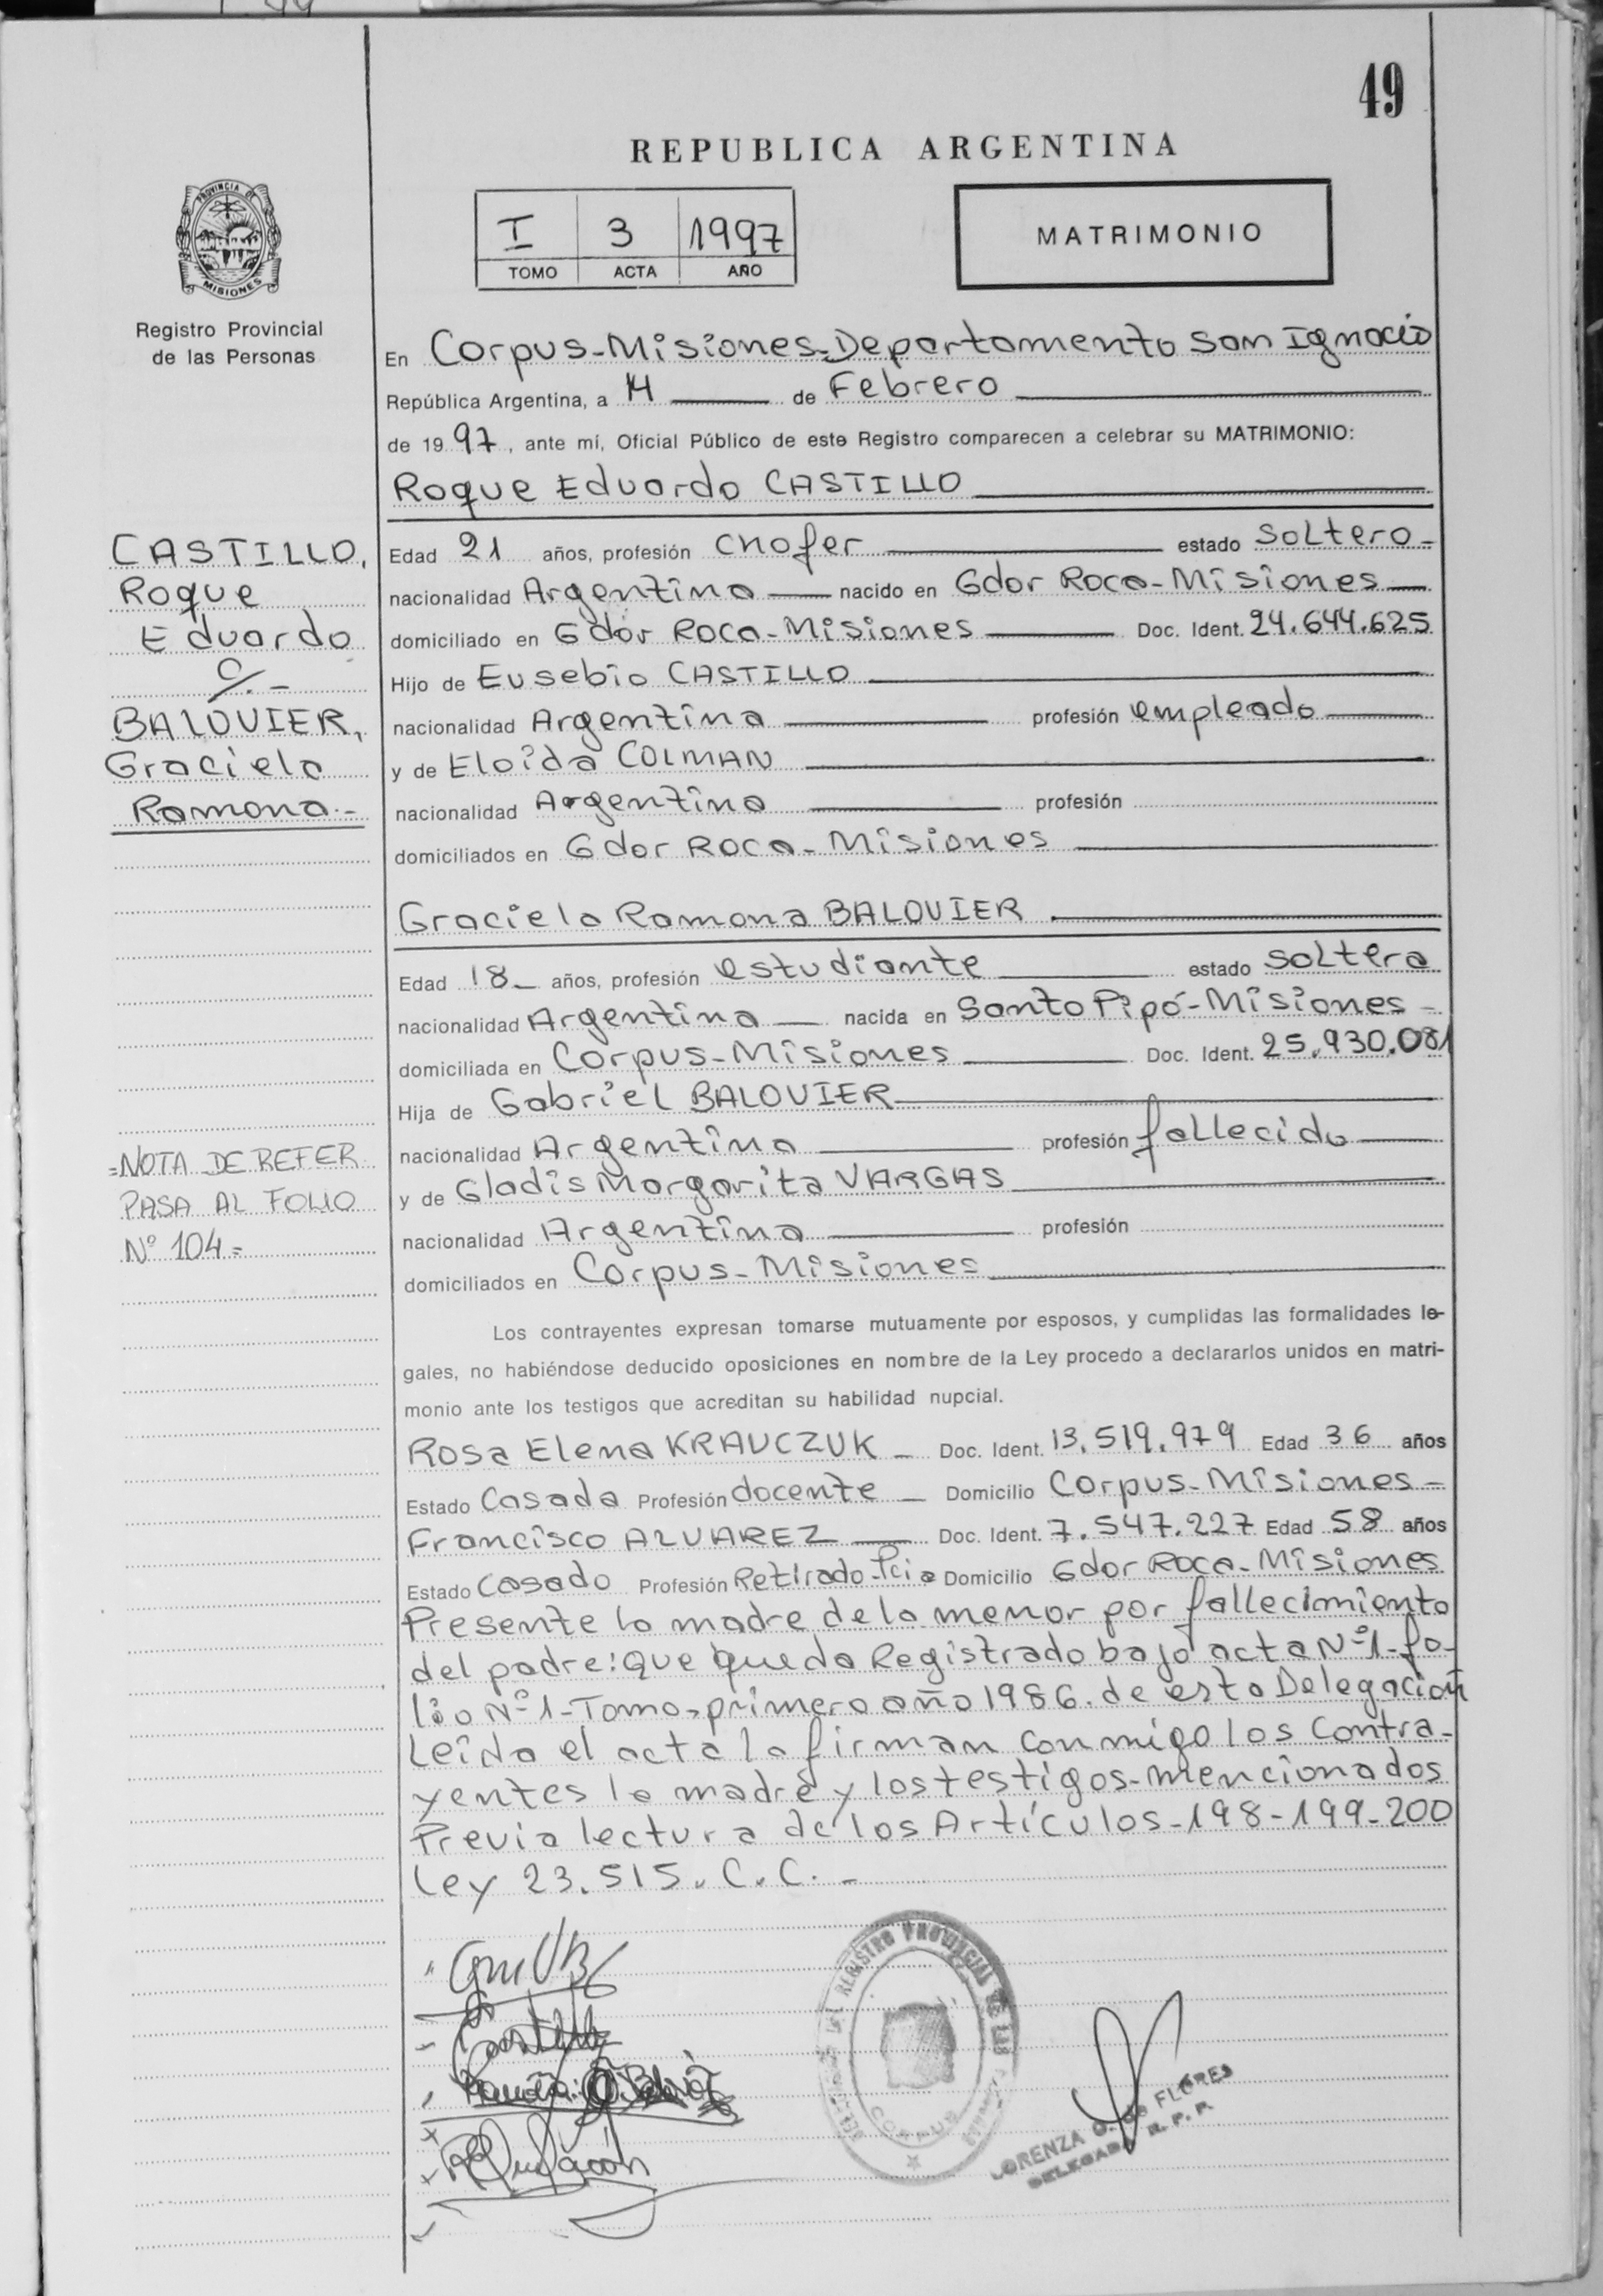 49
REPUBLICA ARGENTINA
PROVINCIA DE
MISIONES
Registro Provincial
de las Personas
I 3 1997
TOMO ACTA AÑO
MATRIMONIO
En Corpus-Misiones-Departamento San Ignacio
República Argentina, a 14 de Febrero
de 1997, ante mí, Oficial Público de este Registro comparecen a celebrar su MATRIMONIO:
Roque Eduardo CASTILLO
CASTILLO,
Roque
Eduardo
c/.-
BALOVIER,
Graciela
Ramona.-
Edad 21 años, profesión chofer estado soltero-
nacionalidad Argentina nacido en Gdor Roca-Misiones
domiciliado en Gdor Roca-Misiones Doc. Ident. 24.644.625
Hijo de Eusebio CASTILLO
nacionalidad Argentina profesión empleado
y de Eloida COLMAN
nacionalidad Argentina profesión
domiciliados en Gdor Roca-Misiones
Graciela Ramona BALOVIER
Edad 18- años, profesión estudiante estado soltera
nacionalidad Argentina nacida en Santo Pipó-Misiones-
domiciliada en Corpus-Misiones Doc. Ident. 25.930.081
Hija de Gabriel BALOVIER
nacionalidad Argentina profesión fallecido
y de Gladis Margarita VARGAS
nacionalidad Argentina profesión
domiciliados en Corpus-Misiones
=NOTA DE REFER
PASA AL FOLIO
Nº 104=
Los contrayentes expresan tomarse mutuamente por esposos, y cumplidas las formalidades le-
gales, no habiéndose deducido oposiciones en nombre de la Ley procedo a declararlos unidos en matri-
monio ante los testigos que acreditan su habilidad nupcial.
Rosa Elena KRAUCZUK - Doc. Ident. 13.519.979 Edad 36 años
Estado Casada Profesión docente - Domicilio Corpus-Misiones-
Francisco ALVAREZ Doc. Ident. 7.547.227 Edad 58 años
Estado Casado Profesión Retirado-Pcia Domicilio Gdor Roca-Misiones
Presente la madre de la menor por fallecimiento
del padre: que queda Registrado bajo acta Nº1-fo-
lio Nº1-Tomo-primero año 1986. de esta Delegación
Leida el acta la firman conmigo los Contra-
yentes la madre y los testigos-mencionados
Previa lectura de los Artículos-198-199-200
Ley 23.515. C.C.-
REGISTRO PROVINCIAL DE LAS
CORPUS
LORENZA O. de FLORES
DELEGADA R. P. P.